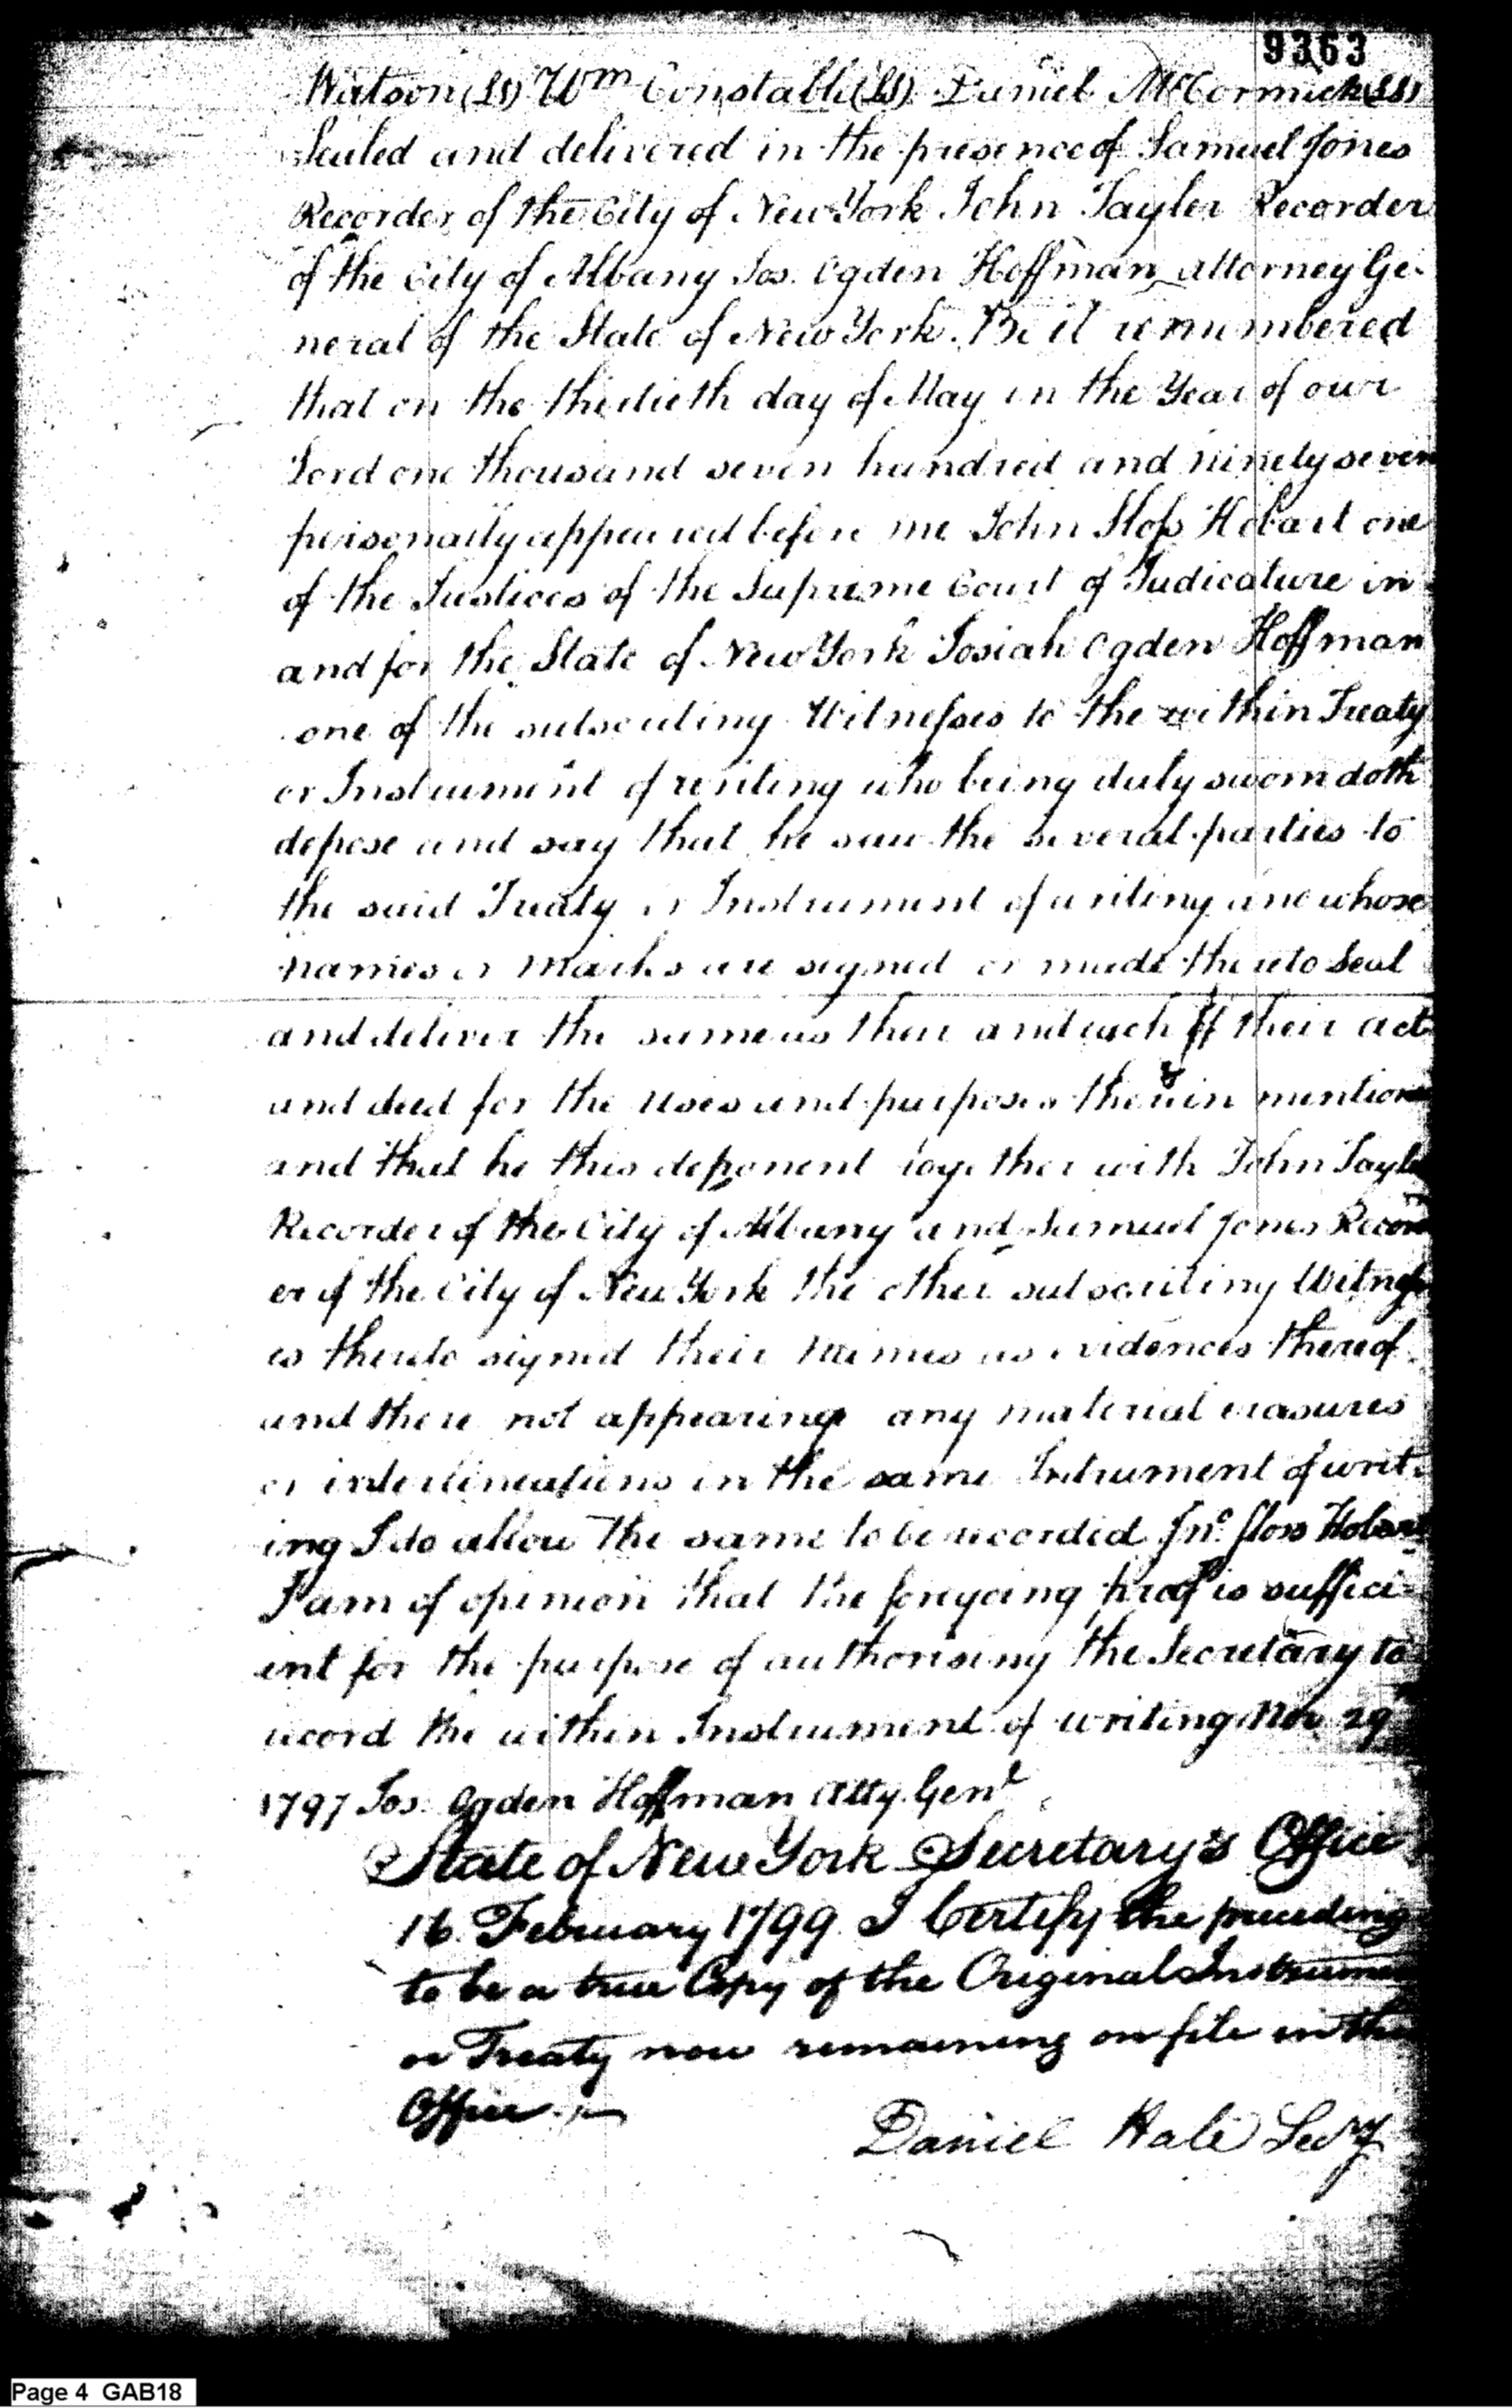 9363
Watson (LS) Wm Constable (LS) Daniel McCormick (LS)
Sealed and delivered in the presence of Samuel Jones
Recorder of the City of New York John Tayler Recorder
of the City of Albany Jos. Ogden Hoffman attorney Ge-
neral of the State of New York. Be it remembered
that on the thirtieth day of May in the Year of our
Lord one thousand seven hundred and ninety seven
personally appeared before me John Sloss Hobart one
of the Justices of the Supreme Court of Judicature in
and for the State of New York Josiah Ogden Hoffman
one of the subscribing Witnesses to the within Treaty
or Instrument of writing who being duly sworn doth
depose and say that he saw the several parties to
the said Treaty or Instrument of writing and whose
names or marks are signed or made thereto Seal
and deliver the same as their and each of their act
and deed for the uses and purposes therein mention
and that he this deponent together with John Tayle
Recorder of the City of Albany and Samuel Jones Recor
er of the City of New York the other subscribing Witness
es thereto signed their names as evidences thereof
and there not appearing any material erasures
or interlineations in the same Intrument of writ-
ing I do allow the same to be recorded Jno. Sloss Hobart
I am of opinion that the foregoing proof is suffici-
ent for the purpose of authorising the Secretary to
record the within Instrument of writing Nov 29
1797 Jos. Ogden Hoffman Atty. Genl
State of New York Secretary's Office
16 February 1799. I Certify the preceeding
to be a true Copy of the Original Instrume
or Treaty now remaining on file in the
Office
Daniel Hale Secy
Page 4 GAB18